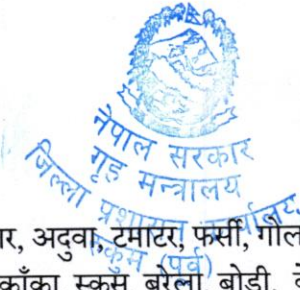 नेपाल सरकार
गृह मन्त्रालय
जिल्ला प्रशासन कार्यालय
रुकुम (पूर्व)
अदुवा, टमाटर, फर्सी,
काँका स्कुस बरेला बोडी,